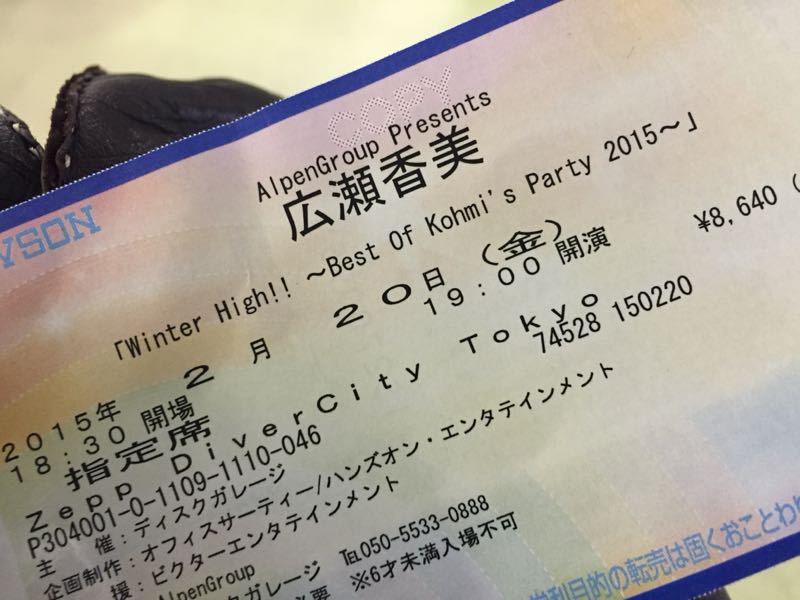 COPY
AlpenGroup Presents
広瀬香美
「Winter High!! ～Best Of Kohmi's Party 2015～」
¥8,640（
2015年 2月 20日（金）
18:30 開場 19:00 開演
指定席
Zepp DiverCity Tokyo
P304001-0-1109-1110-046 74528 150220
主 催：ディスクガレージ
企画制作：オフィスサーティー/ハンズオン・エンタテインメント
援：ビクターエンタテインメント
AlpenGroup
スクガレージ ℡050-5533-0888
必要 ※6才未満入場不可
営利目的の転売は固くおことわり
YSON